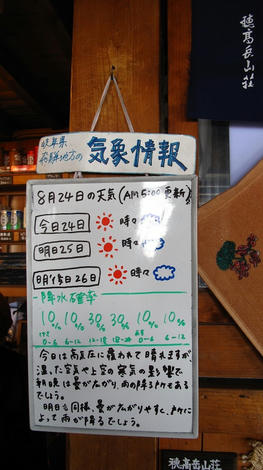 穂高岳山荘
岐阜県
飛騨地方の
気象情報
8月24日の天気(AM5:00更新)
今日24日 時々
明日25日 時々
明後日26日 時々
降水確率
10% 10% 30% 30% 10% 10%
0-6 6-12 12-18 18-24 0-6 6-12
今日は高気圧に覆われて晴れますが、
湿った空気や上空の寒気の影響で
朝晩は雲が広がり、雨の降る所もある
でしょう。
明日も同様、雲が広がりやすく、所に
よって雨が降るでしょう。
穂高岳山荘